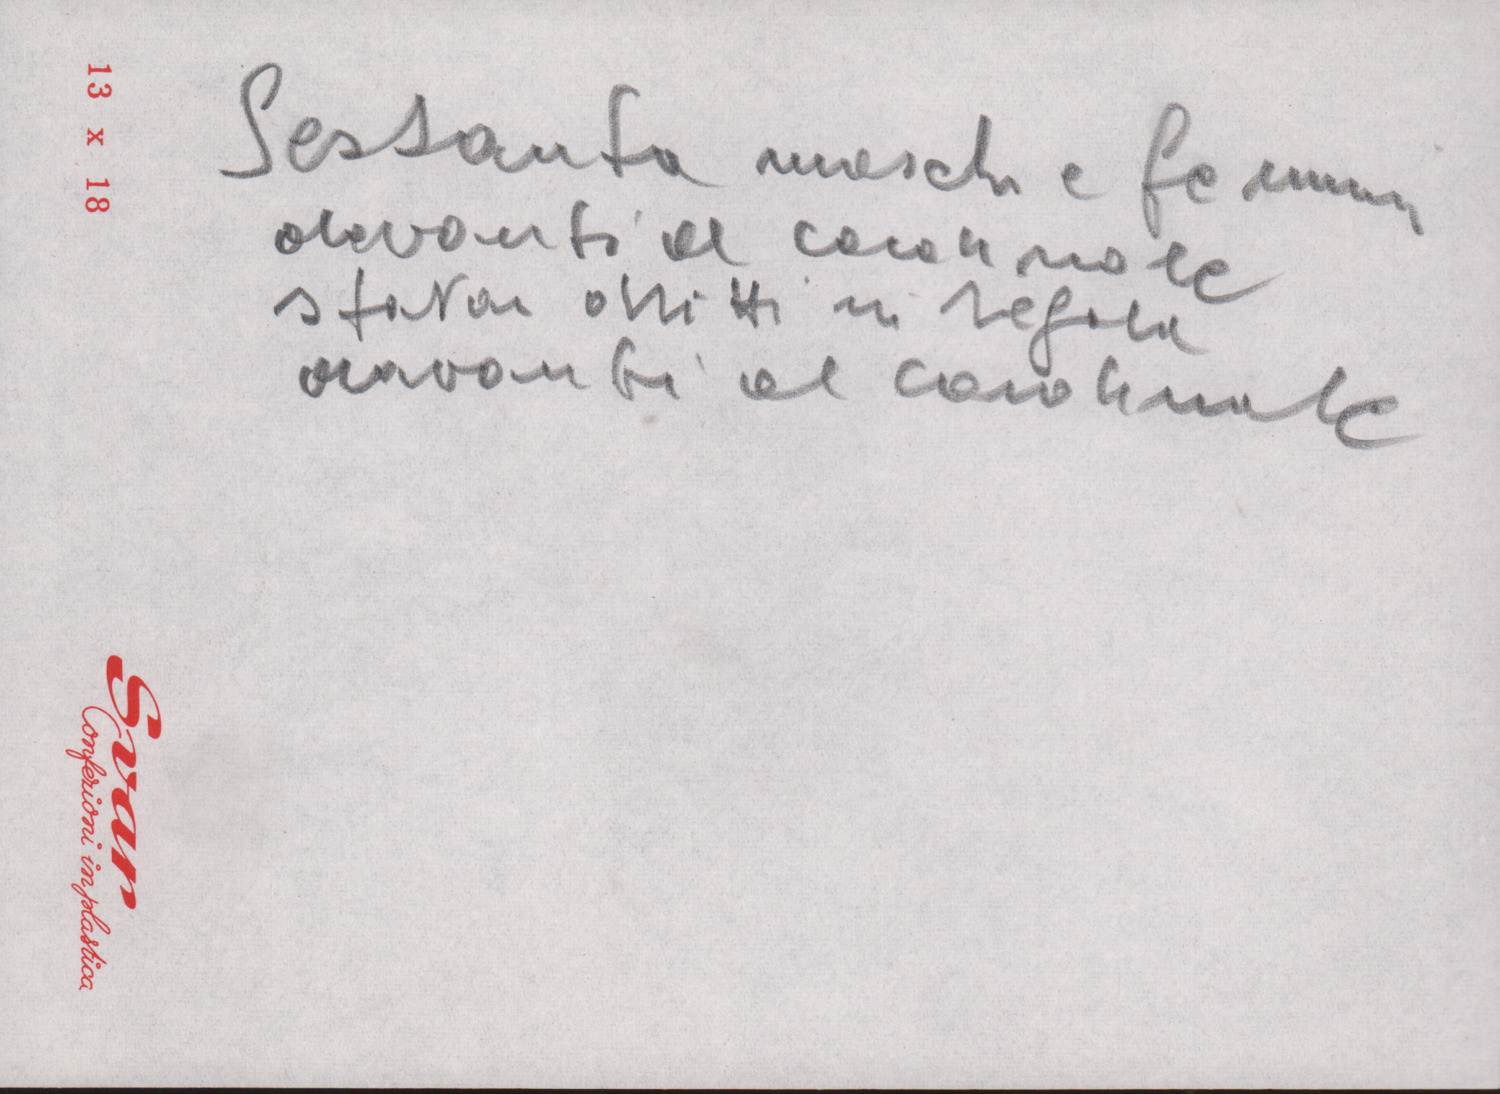 Sessanta maschi e femmine
davanti al cardinale
stavan dritti in regola
davanti al cardinale
13 x 18
Svar
Confezioni in plastica